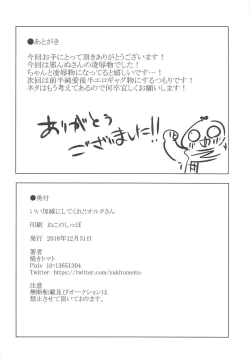 ●あとがき
今回お手にとって頂きありがとうございます！
今回は邪んぬさんの凌辱物でした！
ちゃんと凌辱物になってると嬉しいです…！
次回は前半純愛後半エロギャグ物にするつもりです！
ネタはもう考えてあるので何卒宜しくお願いします！
ありがとう
ございました!!
●奥付
いい加減にしてくれ!!オルタさん
印刷 ねこのしっぽ
発行 2018年12月31日
著者
焼きトマト
Pixiv id=13651304
Twitter https://twitter.com/yakitomeito
注意
無断転載及びオークションは
禁止させて頂いております。